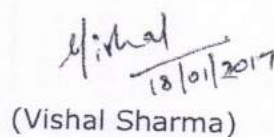 Vishal
18/01/2017
(Vishal Sharma)